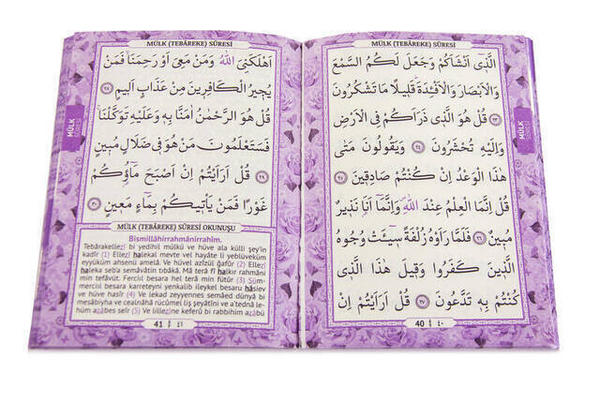 MÜLK (TEBÂREKE) SÛRESİ
الَّذ۪ٓي اَنْشَاَكُمْ وَجَعَلَ لَكُمُ السَّمْعَ
وَالْاَبْصَارَ وَالْاَفْـِٔدَةَ قَل۪يلًا مَا تَشْكُرُونَ
٢٣ قُلْ هُوَ الَّذ۪ي ذَرَاَكُمْ فِي الْاَرْضِ
وَاِلَيْهِ تُحْشَرُونَ ٢٤ وَيَقُولُونَ مَتٰى
هٰذَا الْوَعْدُ اِنْ كُنْتُمْ صَادِق۪ينَ ٢٥
قُلْ اِنَّمَا الْعِلْمُ عِنْدَ اللّٰهِ وَاِنَّمَٓا اَنَا نَذ۪يرٌ
مُب۪ينٌ ٢٦ فَلَمَّا رَاَوْهُ زُلْفَةً س۪ٓيـَٔتْ وُجُوهُ
الَّذ۪ينَ كَفَرُوا وَق۪يلَ هٰذَا الَّذ۪ي
كُنْتُمْ بِه۪ تَدَّعُونَ ٢٧ قُلْ اَرَاَيْتُمْ اِنْ
40 ٤٠
MÜLK
MÜLK (TEBÂREKE) SÛRESİ
اَهْلَكَنِيَ اللّٰهُ وَمَنْ مَعِيَ اَوْ رَحِمَنَا فَمَنْ
يُج۪يرُ الْكَافِر۪ينَ مِنْ عَذَابٍ اَل۪يمٍ ٢٨
قُلْ هُوَ الرَّحْمٰنُ اٰمَنَّا بِه۪ وَعَلَيْهِ تَوَكَّلْنَا
فَسَتَعْلَمُونَ مَنْ هُوَ ف۪ي ضَلَالٍ مُب۪ينٍ
٢٩ قُلْ اَرَاَيْتُمْ اِنْ اَصْبَحَ مَٓاؤُ۬كُمْ
غَوْرًا فَمَنْ يَأْت۪يكُمْ بِمَٓاءٍ مَع۪ينٍ ٣٠
MÜLK (TEBÂREKE) SÛRESİ OKUNUŞU
Bismillâhirrahmânirrahîm.
Tebârakellezî bi yedihil mülkü ve hüve ala külli şey'in
kadîr (1) Ellezî halekal mevte vel hayâte li yeblüveküm
eyyüküm ahsenü amelâ. Ve hüvel azîzül ğafûr (2) Ellezî
haleka seb'a semâvâtin tıbâkâ. Mâ terâ fî halkir rahmâni
min tefâvüt. Ferciıl besara hel terâ min fütûr (3) Süm-
merciıl besara karreteyni yenkalib ileykel besaru hâsiev
ve hüve hasîr (4) Ve lekad zeyyennes semâed dünyâ bi
mesâbîyha ve cealnâhâ rucûmel liş şeyâtîni ve a'tednâ le-
hüm azâbes seîr (5) Ve lillezîne keferû bi rabbihim azâbü
41 ٤١
MÜLK